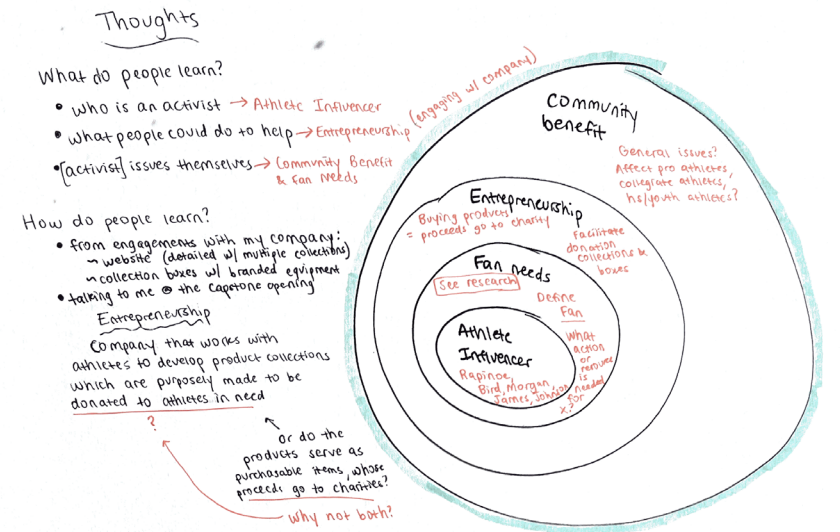 Thoughts
What do people learn?
• who is an activist → Athlete Influencer
• what people could do to help → Entrepreneurship
• [activist] issues themselves → Community Benefit
& Fan Needs
How do people learn?
• from engagements with my company:
~ website (detailed w/ multiple collections)
~ collection boxes w/ branded equipment
• talking to me @ the capstone opening
Entrepreneurship
Company that works with
athletes to develop product collections
which are purposely made to be
donated to athletes in need
?
or do the
products serve as
purchasable items, whose
proceeds go to charities?
why not both?
(engaging w/ company)
Community
benefit
General issues?
Affect pro athletes,
collegiate athletes,
hs/youth athletes?
Entrepreneurship
Buying products
= proceeds go to charity
Facilitate
donation
collections &
boxes
Fan needs
See research
Define
Fan
What
action
or
resource
is
needed
for
x?
Athlete
Influencer
Rapinoe,
Bird, Morgan,
James, Johnson